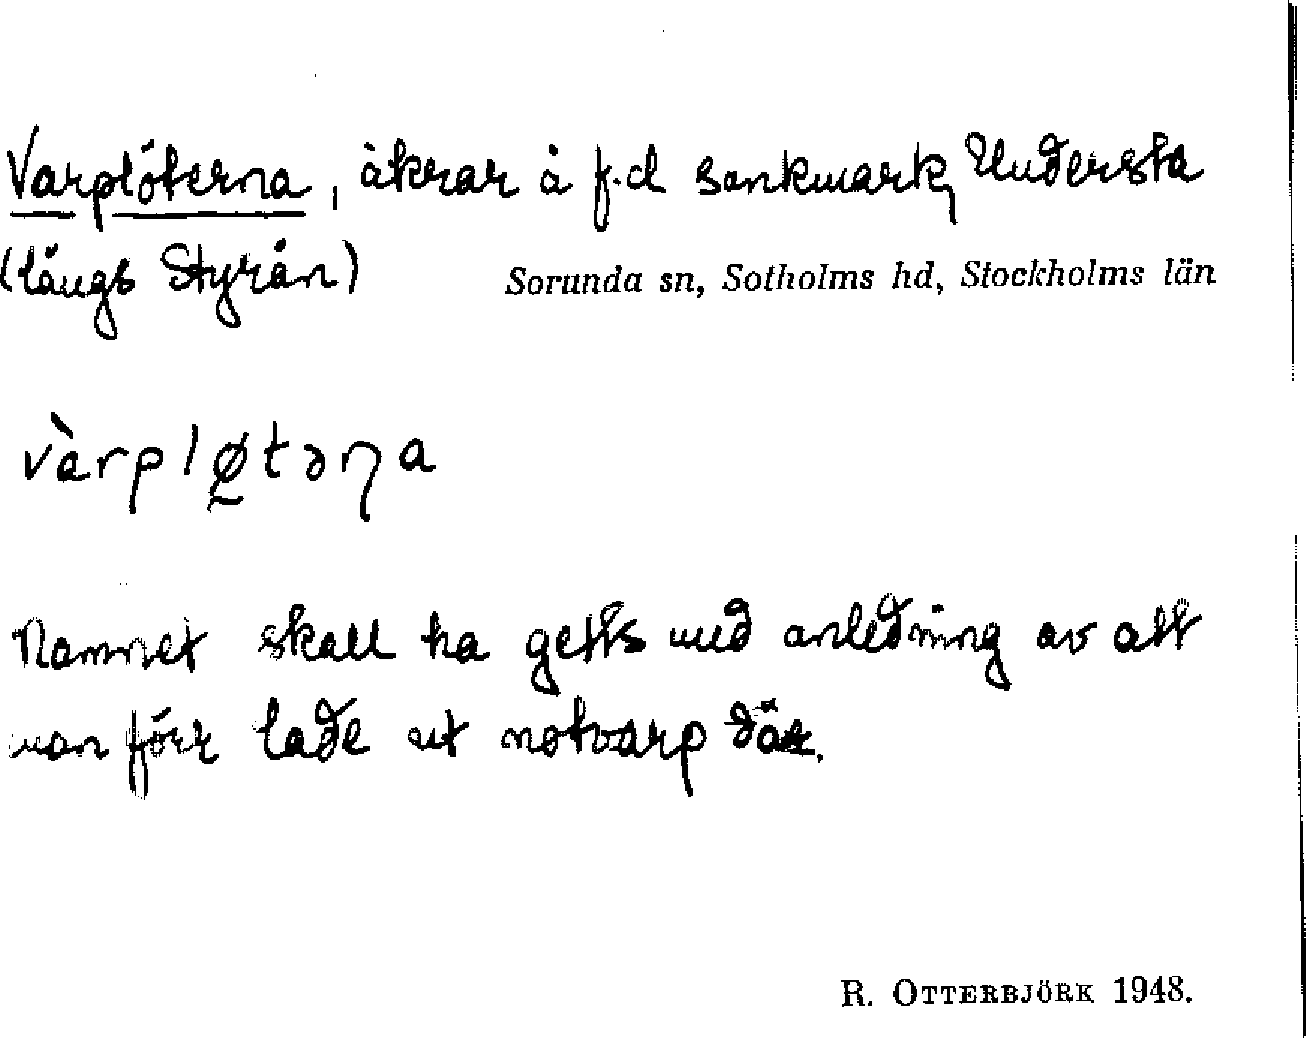 Varplöterna, åkrar å f.d sankmark, Understa
(längs Styrån) Sorunda sn, Sotholms hd, Stockholms län
vàrpløtəɳa
Namnet skall ha getts med anledning av att
man förr lade ut notvarp där.
R. OTTERBJÖRK 1948.